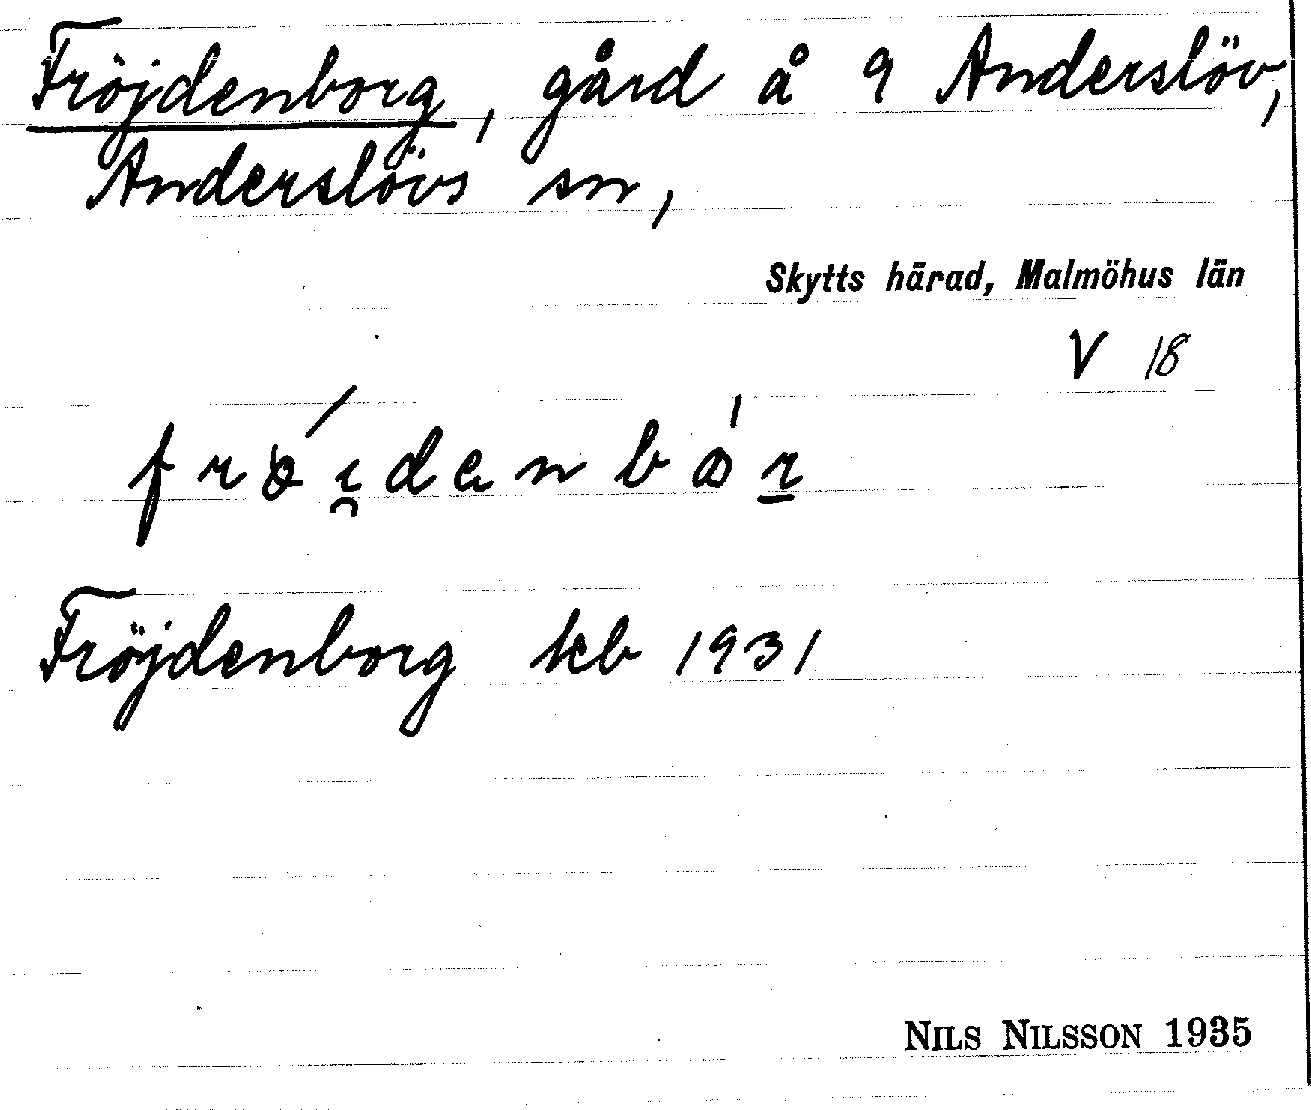 Fröjdenborg, gård å 9 Anderslöv,
Anderslövs sn,
Skytts härad, Malmöhus län
V 18
Fröjdenborg kb 1931
NILS NILSSON 1935